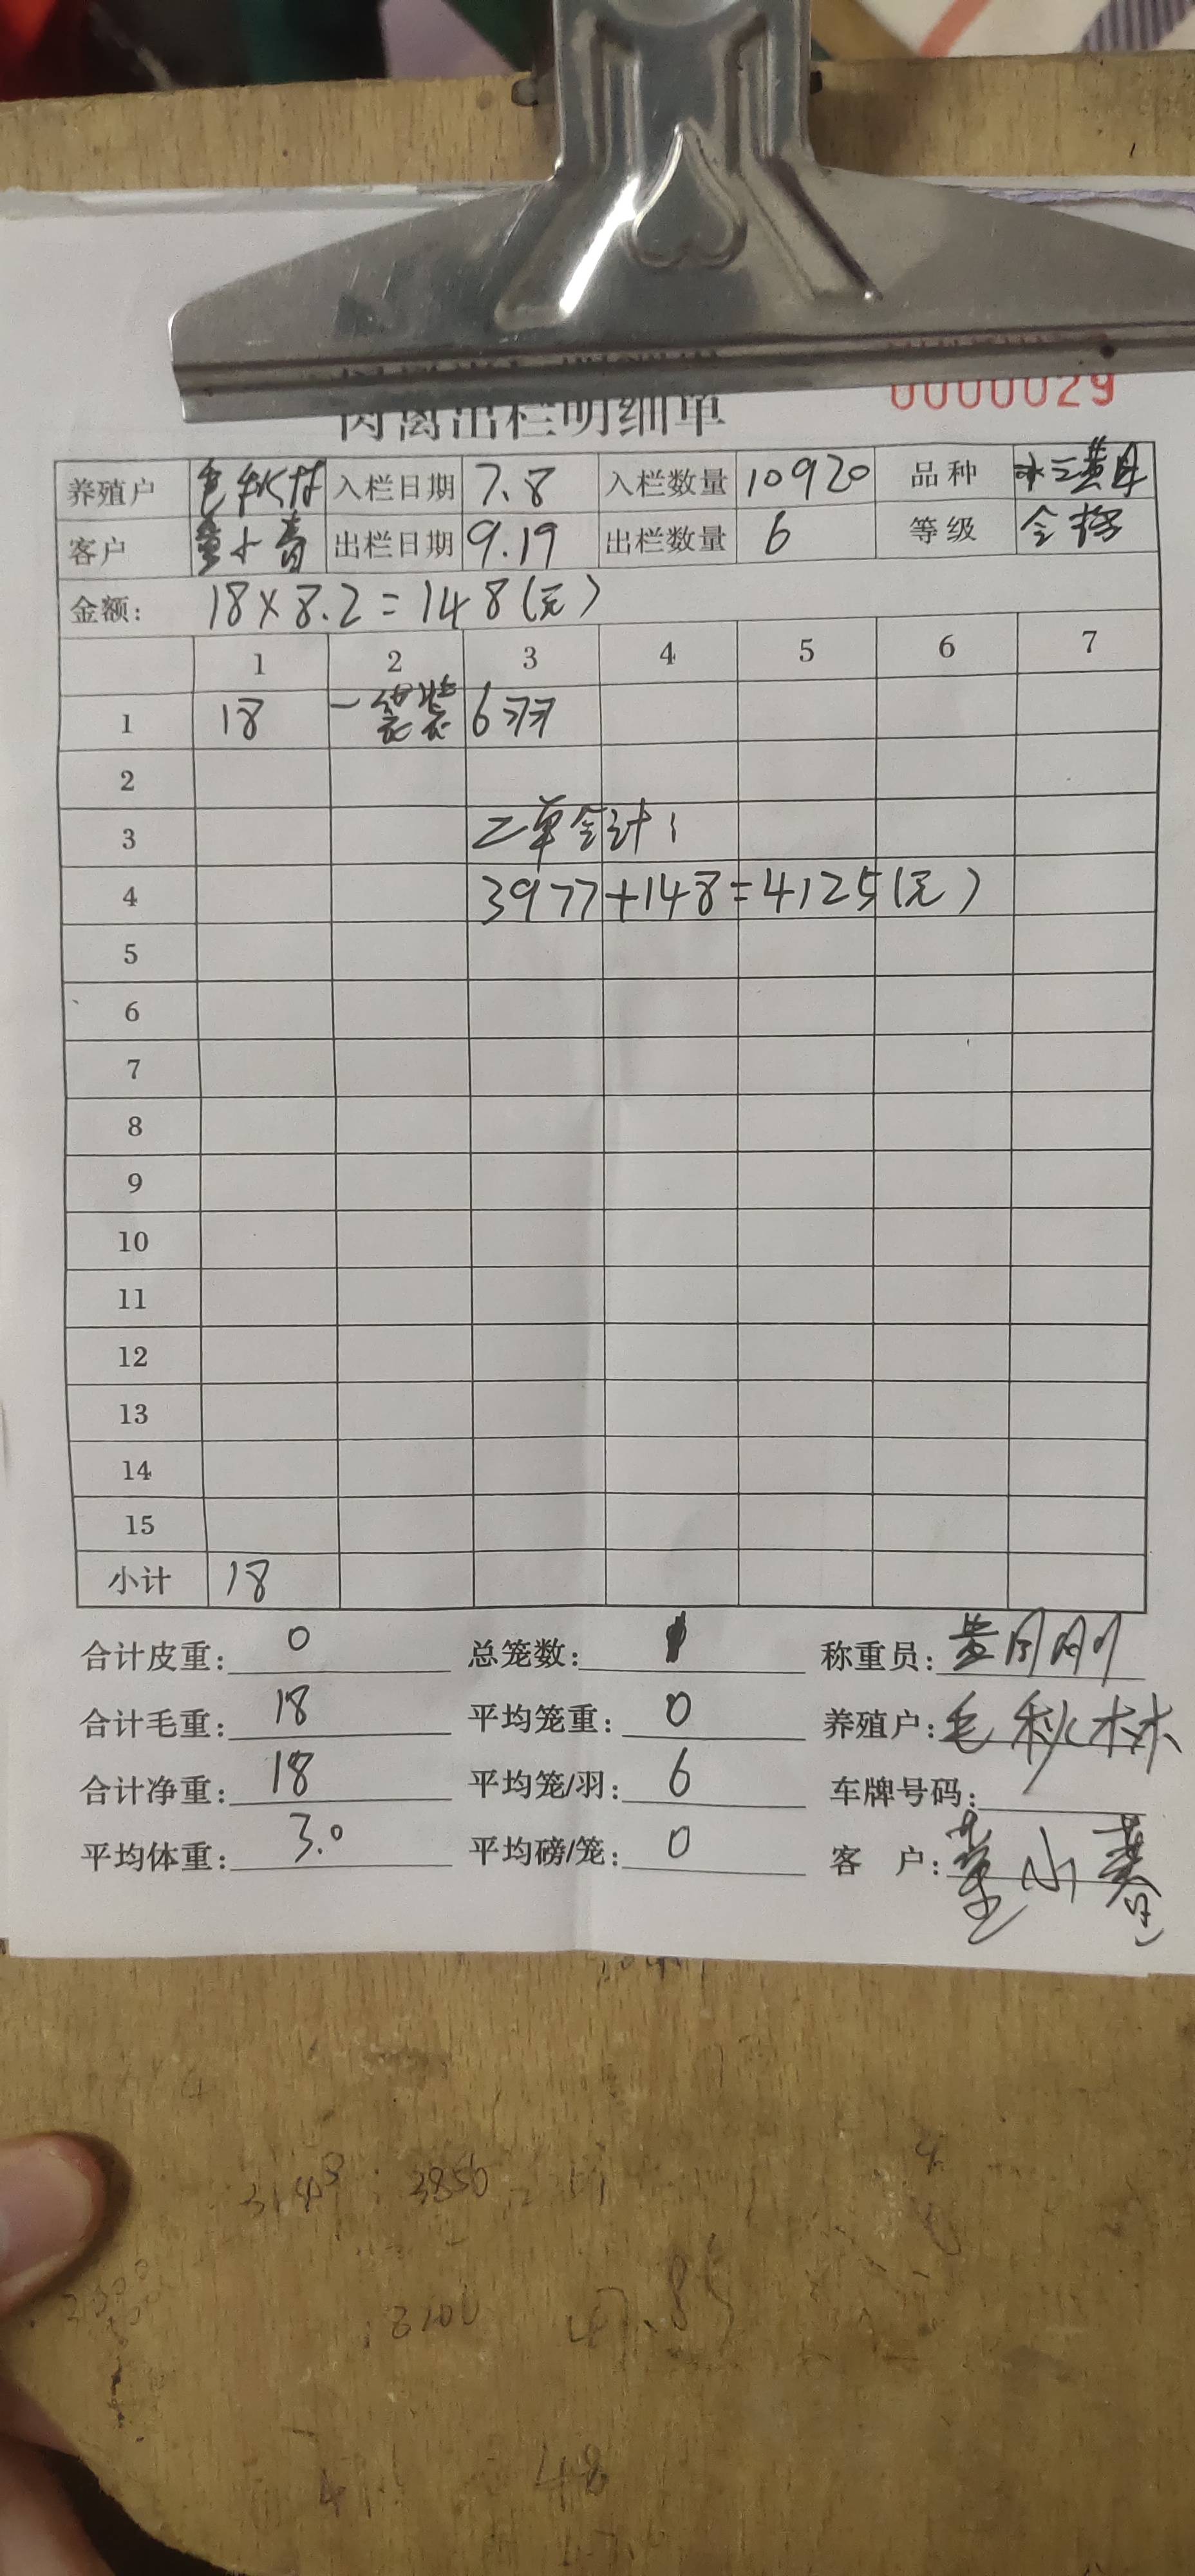 肉禽出栏明细单 0000029
养殖户 毛秋林 入栏日期 7.8 入栏数量 10920 品种 三黄母
客户 董小春 出栏日期 9.19 出栏数量 6 等级 合格
金额: 18×8.2=148(元)
1 2 3 4 5 6 7
1 18 一袋装 6羽
2
3 二单合计:
4 3977+148=4125(元)
5
6
7
8
9
10
11
12
13
14
15
小计 18
合计皮重: 0 总笼数: 称重员: 黄月刚
合计毛重: 18 平均笼重: 0 养殖户: 毛秋林
合计净重: 18 平均笼/羽: 6 车牌号码:
平均体重: 3.0 平均磅/笼: 0 客 户: 董小春
3850
3100
48